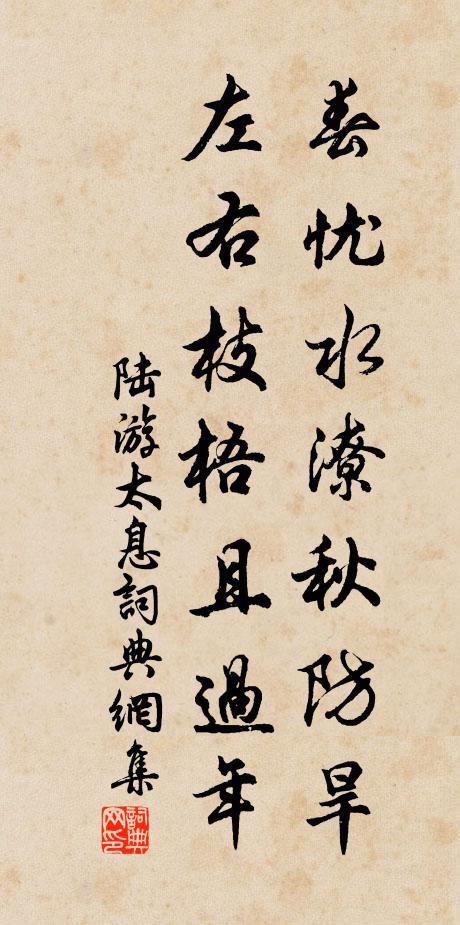 春忧水潦秋防旱
左右枝梧且過年
陆游太息詞典網集
詞典网印